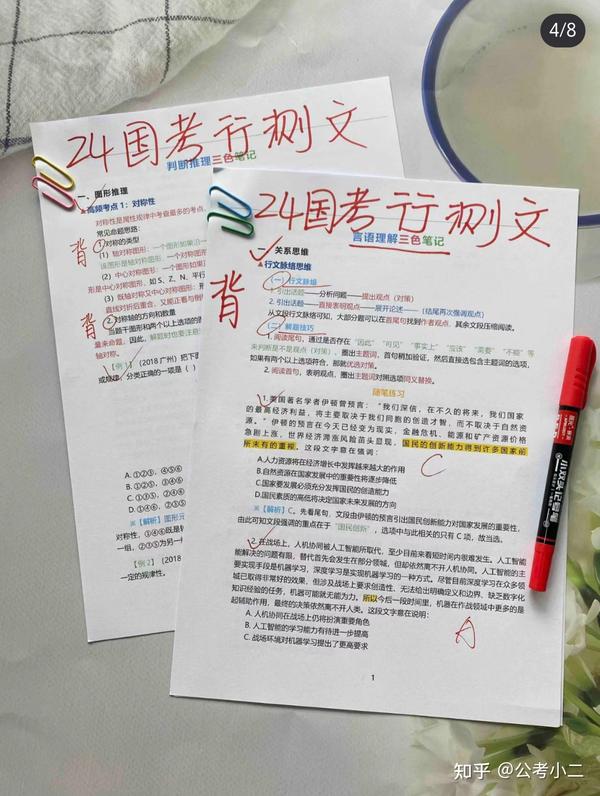 4/8
24国考行测文
判断推理三色笔记
一、图形推理
▲高频考点1:对称性
对称性是属性规律中考查最多的考点,
常见命题思路:
背
①对称的类型
(1)轴对称图形:一个图形如果沿一
该图形是轴对称图形,一个对称图形
(2)中心对称图形:
形是中心对称图形,如 S、Z、N、平行
(3)既轴对称又中心对称图形:
直线对折后重合、又能正着看与倒
②对称轴的方向和数量
当题干图形和两个以上选项的
量来命题。因此,解题时也要注意
轴对称。
【例1】(2018广州)把下
或规律,分类正确的一项是(
A.①②⑤,④⑤⑥
B.①③④,
C.①②⑥,
D.①③⑤,
※【解析】图形元
对称性,①④⑥是轴
一组,②③⑤为另一
【例2】(2018
一定的规律性。
24国考行测文
言语理解三色笔记
一、关系思维
▲行文脉络思维
背
(一)行文脉络
1.引出话题——分析问题——提出观点(对策)
2.引出话题——直接表明观点——展开论述——(结尾再次强调观点)
从文段行文脉络可知,大部分篇可以在首尾句找到作者观点,其余文段压缩阅读。
(二)解题技巧
1.阅读尾句,通过是否存在“因此”“可见”“事实上”“应该”“需要”“不能”等
来判断是不是观点(对策)、圈出主题词、首句稍加验证,然后直接选包含主题词的选项,
如果有两个以上选项符合,那就优选对策。
2.阅读首句,表明观点,圈出主题词对照选项同义替换。
随笔练习
1.美国著名学者伊顿曾预言:“我们深信,在不久的将来,我们国家
的最高经济利益,将主要取决于我们同胞的创造才智,而不取决于自然资
源。”伊顿的预言在今天已经变为现实,金融危机、能源和矿产资源价格
急剧上涨,世界经济滞涨风险苗头显现,国民的创新能力得到许多国家前
所未有的重视。这段文字意在强调:
C
A.人力资源将在经济增长中发挥越来越大的作用
B.自然资源在国家发展中的重要性将逐步降低
C.国家要发展必须充分发挥国民的创造能力
D.国民素质的高低将决定国家未来发展的方向
※【解析】C。先看尾句,文段由伊顿的预言引出国民创新能力对国家发展的重要性,
由此可知文段强调的重点在于“国民创新”,选项中与此相关的只有 C 项,故当选。
2.在战场上,人机协同被人工智能所取代,至少目前来看短时间内很难发生。人工智能
能解决的问题有限,替代首先会发生在部分领域,但却依然离不开人机协同。人工智能的主
要实现手段是机器学习,深度学习是实现机器学习的一种方式。尽管目前深度学习在众多领
域已取得非常好的效果,但涉及战场上要求创造性、无法给出明确定义和边界、缺乏数字化
知识经验的任务,机器可能就无能为力。所以今后一段时间里,机器在作战领域中更多的是
起辅助作用,最终的决策依然离不开人类。这段文字意在说明:
A
A.人机协同在战场上仍将扮演重要角色
B.人工智能的学习能力有待进一步提高
C.战场环境对机器学习提出了更高要求
1
小双头记号笔
知乎 @公考小二